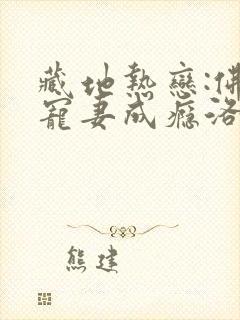 藏地熱戀:佛
寵妻成癮洛
熊建